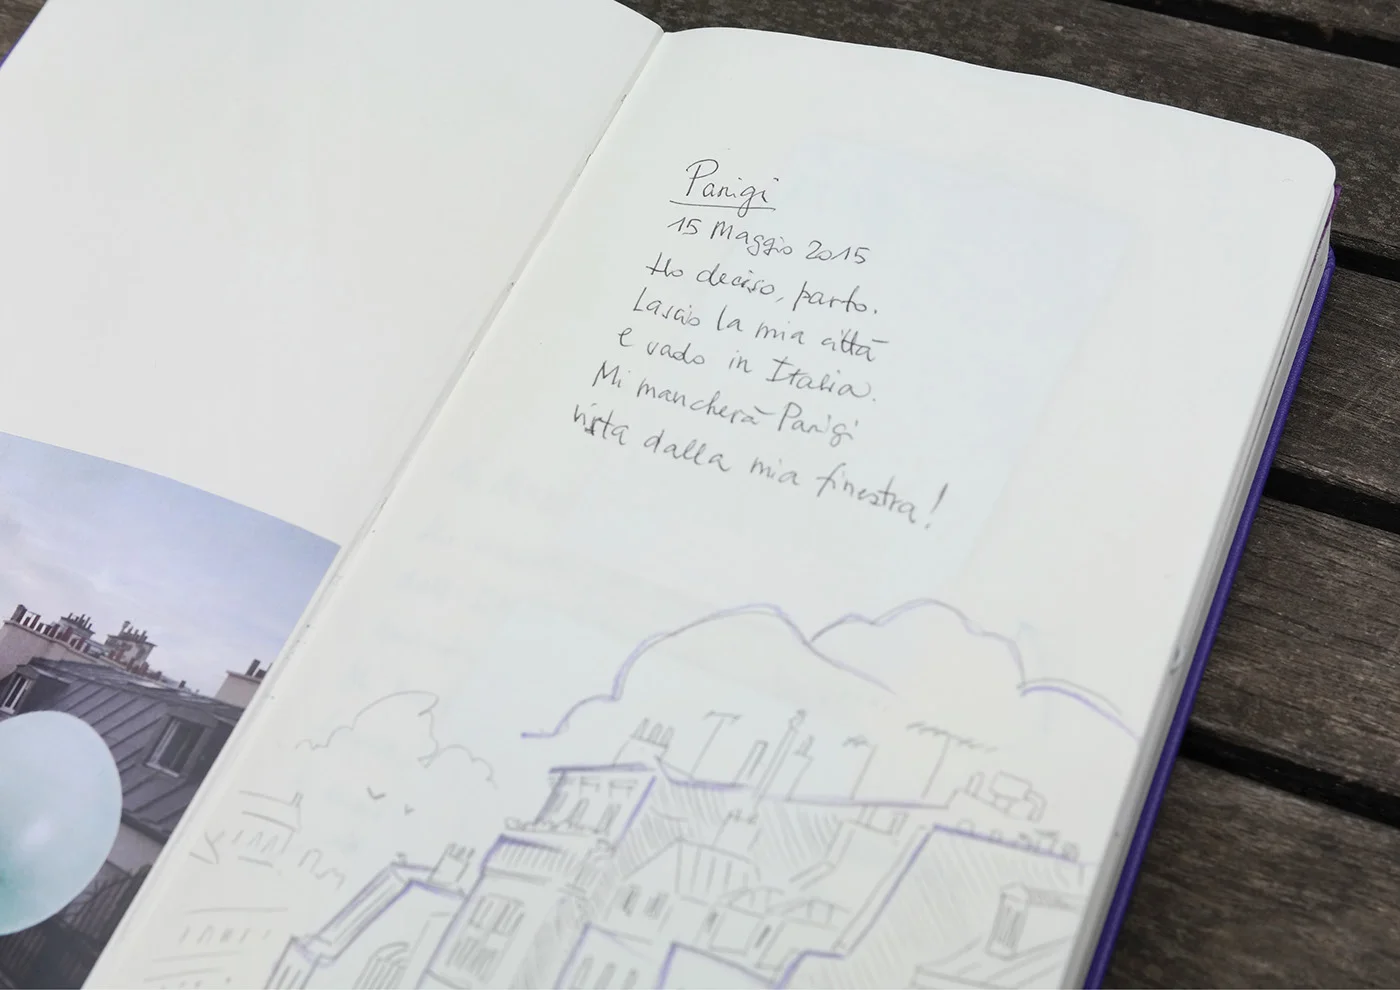 Parigi
15 Maggio 2015
Ho deciso, parto.
Lascio la mia città
e vado in Italia.
Mi mancherà Parigi
vista dalla mia finestra!